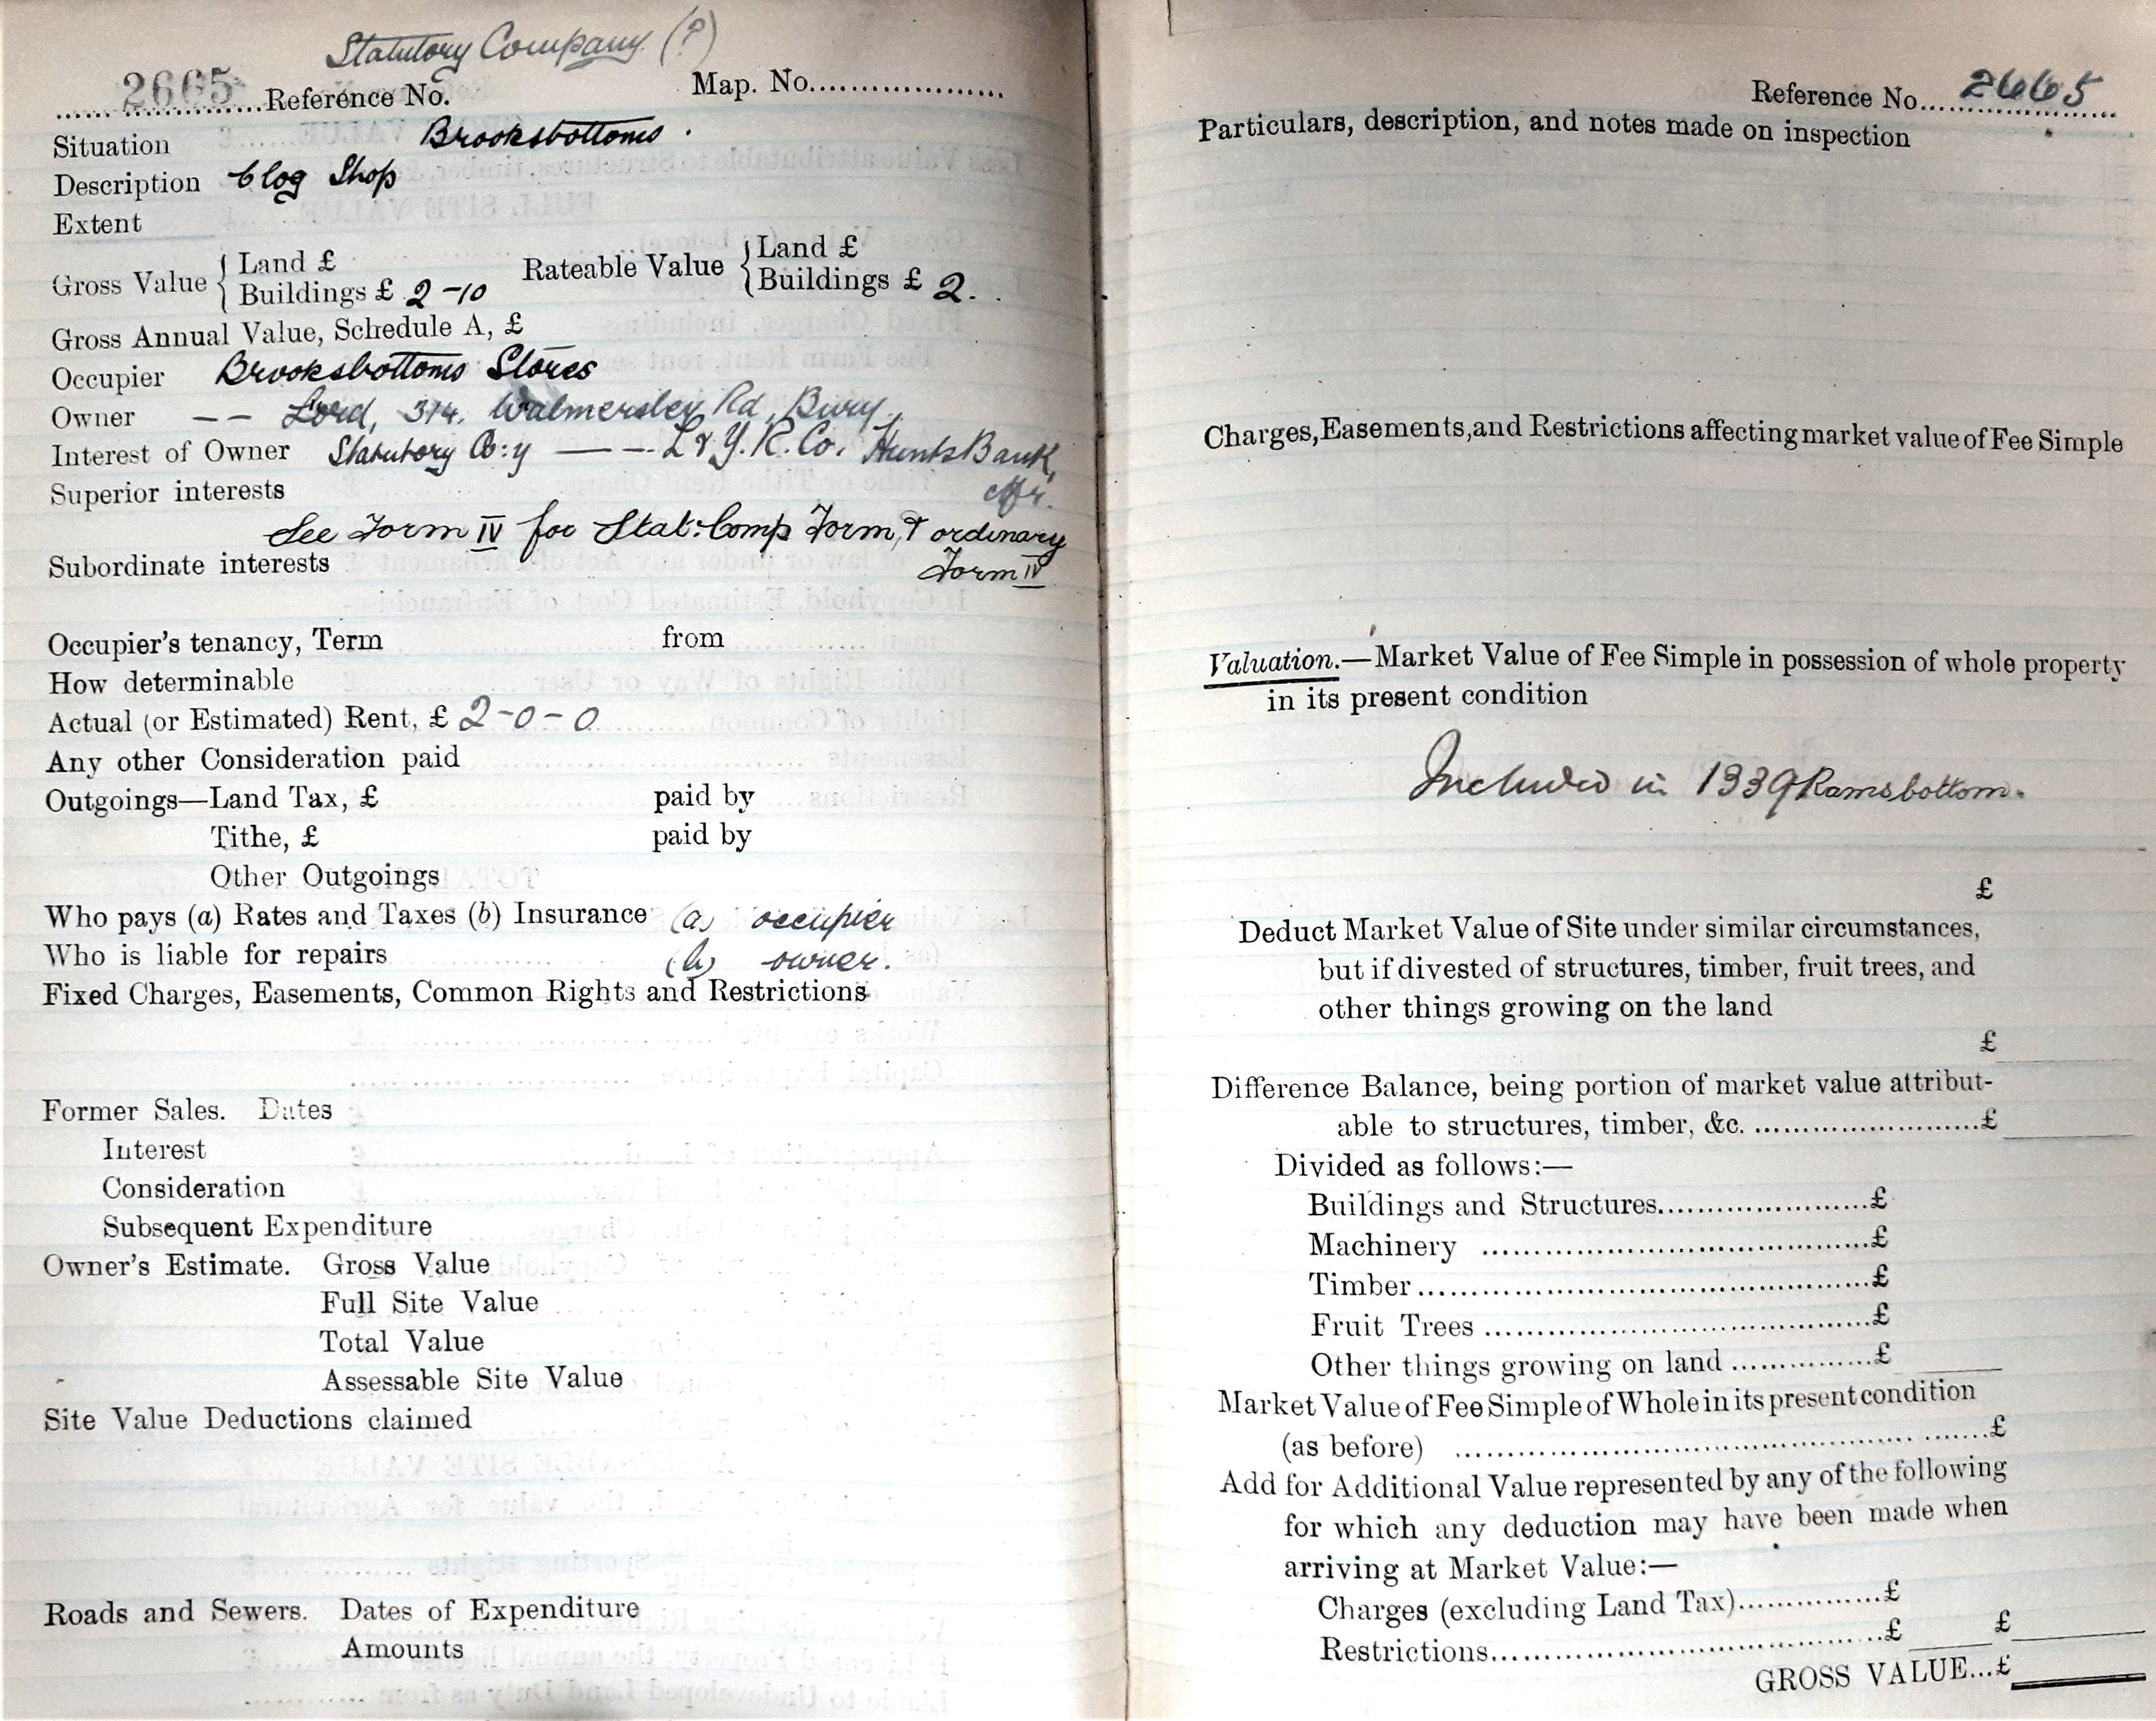 Statutory Company (?)
2665 Reference No. Map. No.
Situation Brooksbottoms.
Description Clog Shop
Extent
Gross Value { Land £ Rateable Value { Land £
Buildings £ 2-10 Buildings £ 2.
Gross Annual Value, Schedule A, £
Occupier Brooksbottoms Stores
Owner —— Lord, 314. Walmersley Rd, Bury.
Interest of Owner Statutory Co:y —— L & Y. R. Co. Hunts Bank,
Superior interests M/r.
See Form IV for Stat: Comp Form, & ordinary
Subordinate interests Form IV
Occupier's tenancy, Term from
How determinable
Actual (or Estimated) Rent, £ 2-0-0
Any other Consideration paid
Outgoings—Land Tax, £ paid by
Tithe, £ paid by
Other Outgoings
Who pays (a) Rates and Taxes (b) Insurance (a) occupier
Who is liable for repairs (b) owner.
Fixed Charges, Easements, Common Rights and Restrictions
Former Sales. Dates
Interest
Consideration
Subsequent Expenditure
Owner's Estimate. Gross Value
Full Site Value
Total Value
Assessable Site Value
Site Value Deductions claimed
Roads and Sewers. Dates of Expenditure
Amounts
Reference No. 2665
Particulars, description, and notes made on inspection
Charges, Easements, and Restrictions affecting market value of Fee Simple
Valuation.—Market Value of Fee Simple in possession of whole property
in its present condition
Included in 1339 Ramsbottom.
£
Deduct Market Value of Site under similar circumstances,
but if divested of structures, timber, fruit trees, and
other things growing on the land
£
Difference Balance, being portion of market value attribut-
able to structures, timber, &c. £
Divided as follows:—
Buildings and Structures £
Machinery £
Timber £
Fruit Trees £
Other things growing on land £
Market Value of Fee Simple of Whole in its present condition
(as before) £
Add for Additional Value represented by any of the following
for which any deduction may have been made when
arriving at Market Value:—
Charges (excluding Land Tax) £
Restrictions £ £
GROSS VALUE...£